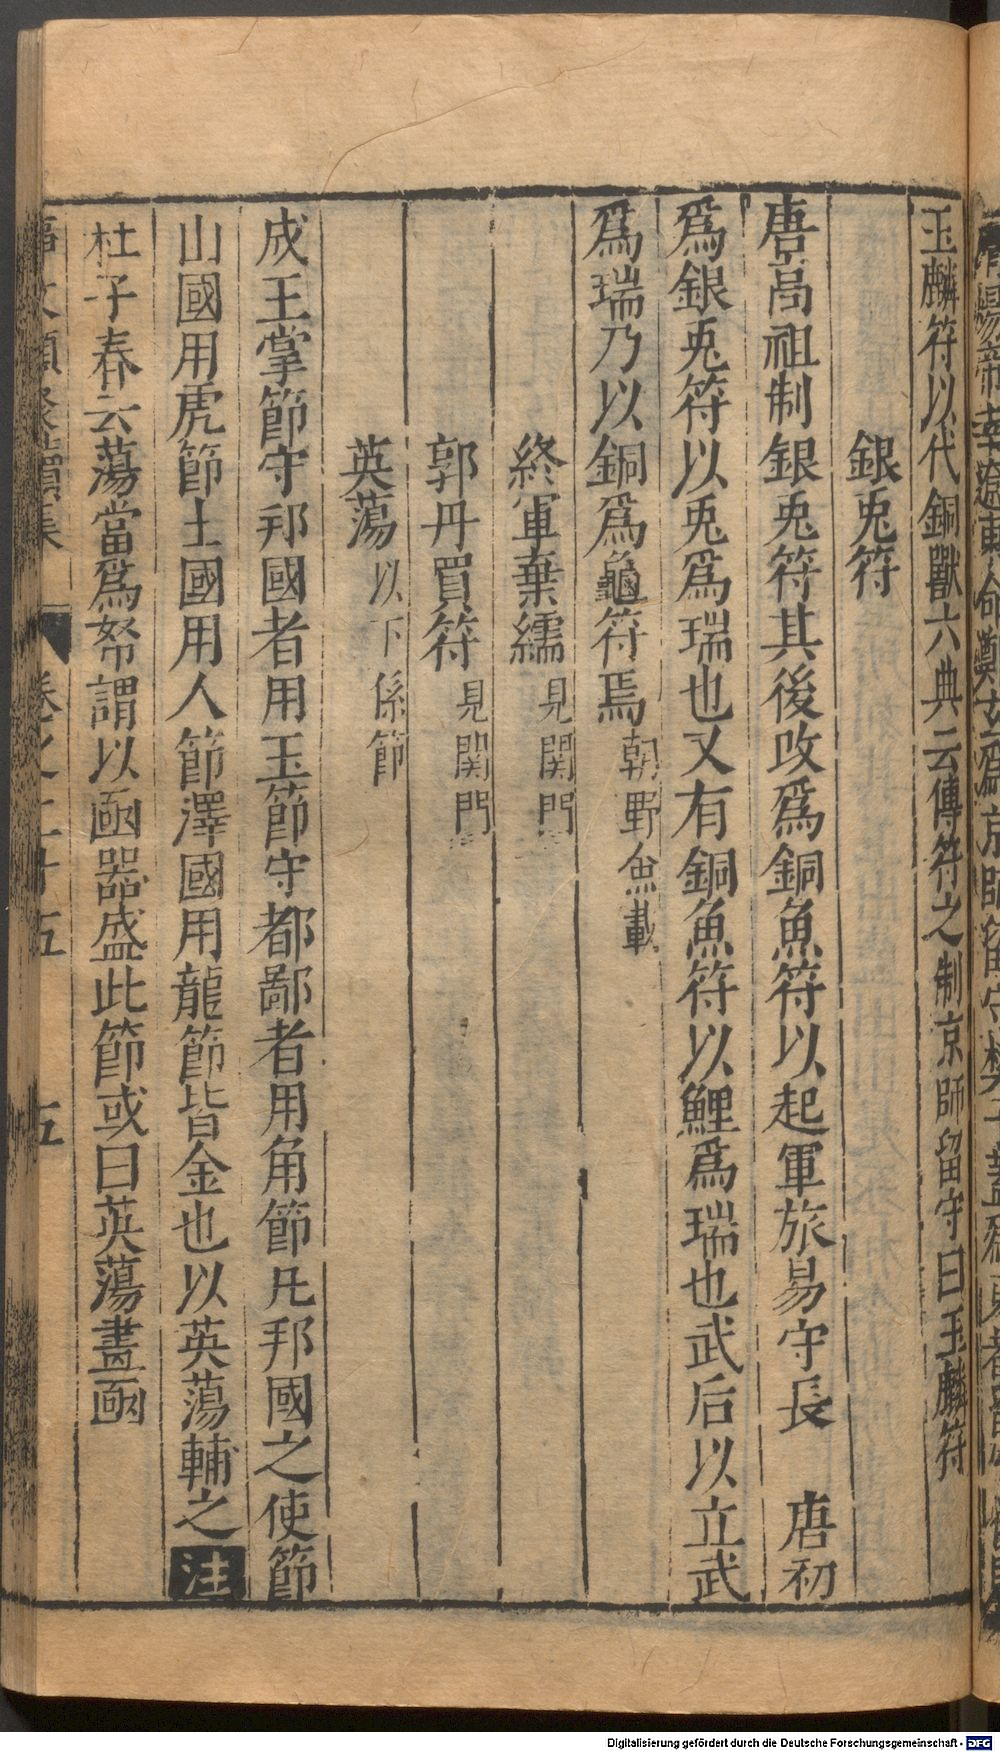 玉麟符以代銅獸六典云傳符之制京師留守曰玉麟符
銀兎符
唐高祖制銀兎符其後改爲銅魚符以起軍旅易守長 唐初
爲銀兎符以兎爲瑞也又有銅魚符以鯉爲瑞也武后以立武
爲瑞乃以銅爲龜符焉朝野僉載
終軍棄繻見関門
郭丹買符見関門
英蕩以下係節
成王掌節守邦國者用玉節守都鄙者用角節凡邦國之使節
山國用虎節土國用人節澤國用龍節皆金也以英蕩輔之注
杜子春云蕩當爲帑謂以凾器盛此節或曰英蕩畫凾
卷之二十五 五
Digitalisierung gefördert durch die Deutsche Forschungsgemeinschaft - DFG